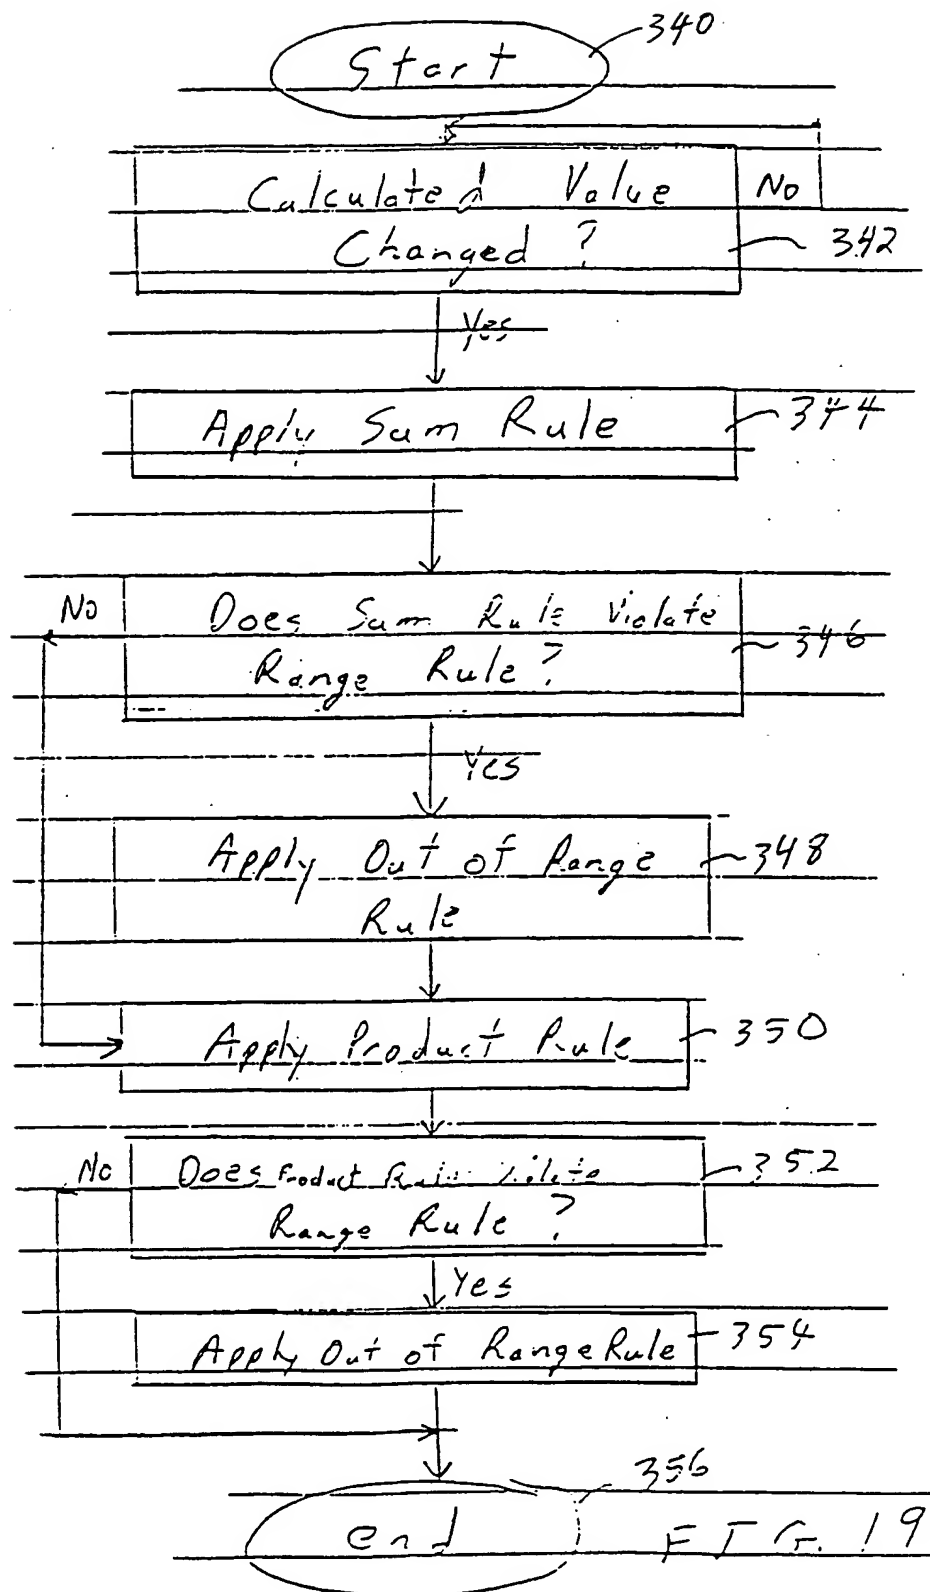 340
Start
Calculated Value
No
Changed ?
342
Yes
Apply Sum Rule
344
No
Does Sum Rule Violate
346
Range Rule?
Yes
Apply Out of Range
348
Rule
Apply Product Rule
350
No
Does Product
352
Range Rule ?
Yes
Apply Out of Range Rule
354
356
end
FIG. 19